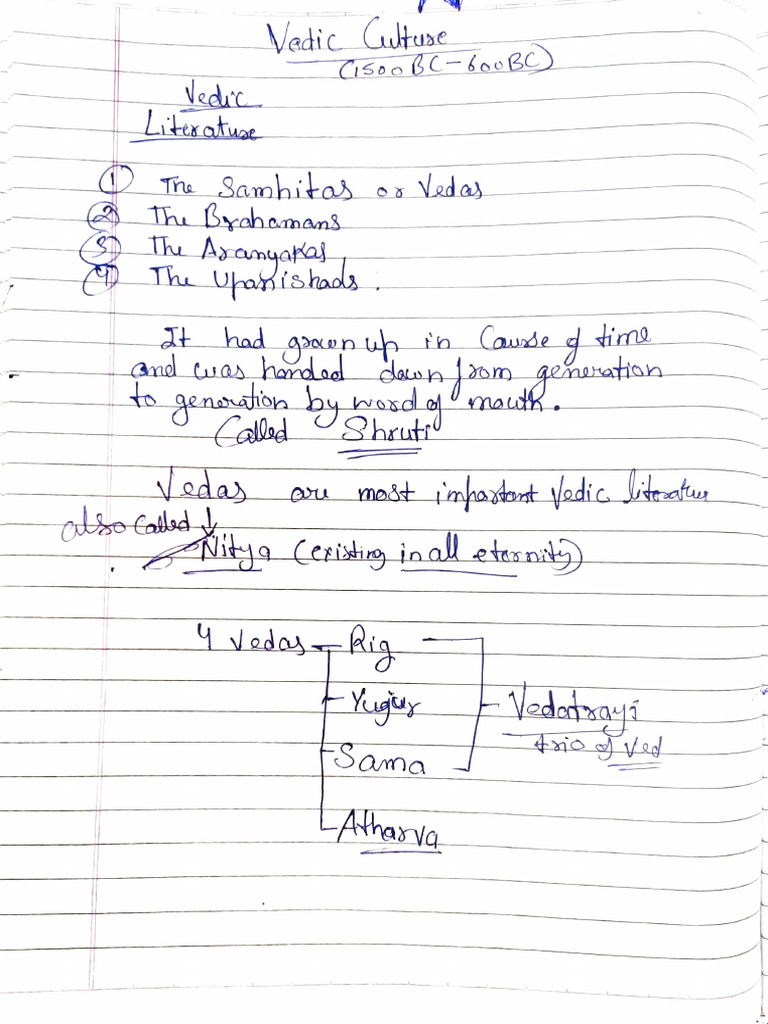 Vedic Culture
(1500BC-600BC)
Vedic
Literature
① The Samhitas or Vedas
② The Brahamans
③ The Aranyakas
④ The Upanishads.
It had grown up in Cause of time
and was handed down from generation
to generation by word of mouth.
Called Shruti
Vedas are most important Vedic literature
also Called ↓
Nitya (existing in all eternity)
4 Vedas - Rig
Yugur
Vedatrayi
trio of Ved
Sama
Atharva